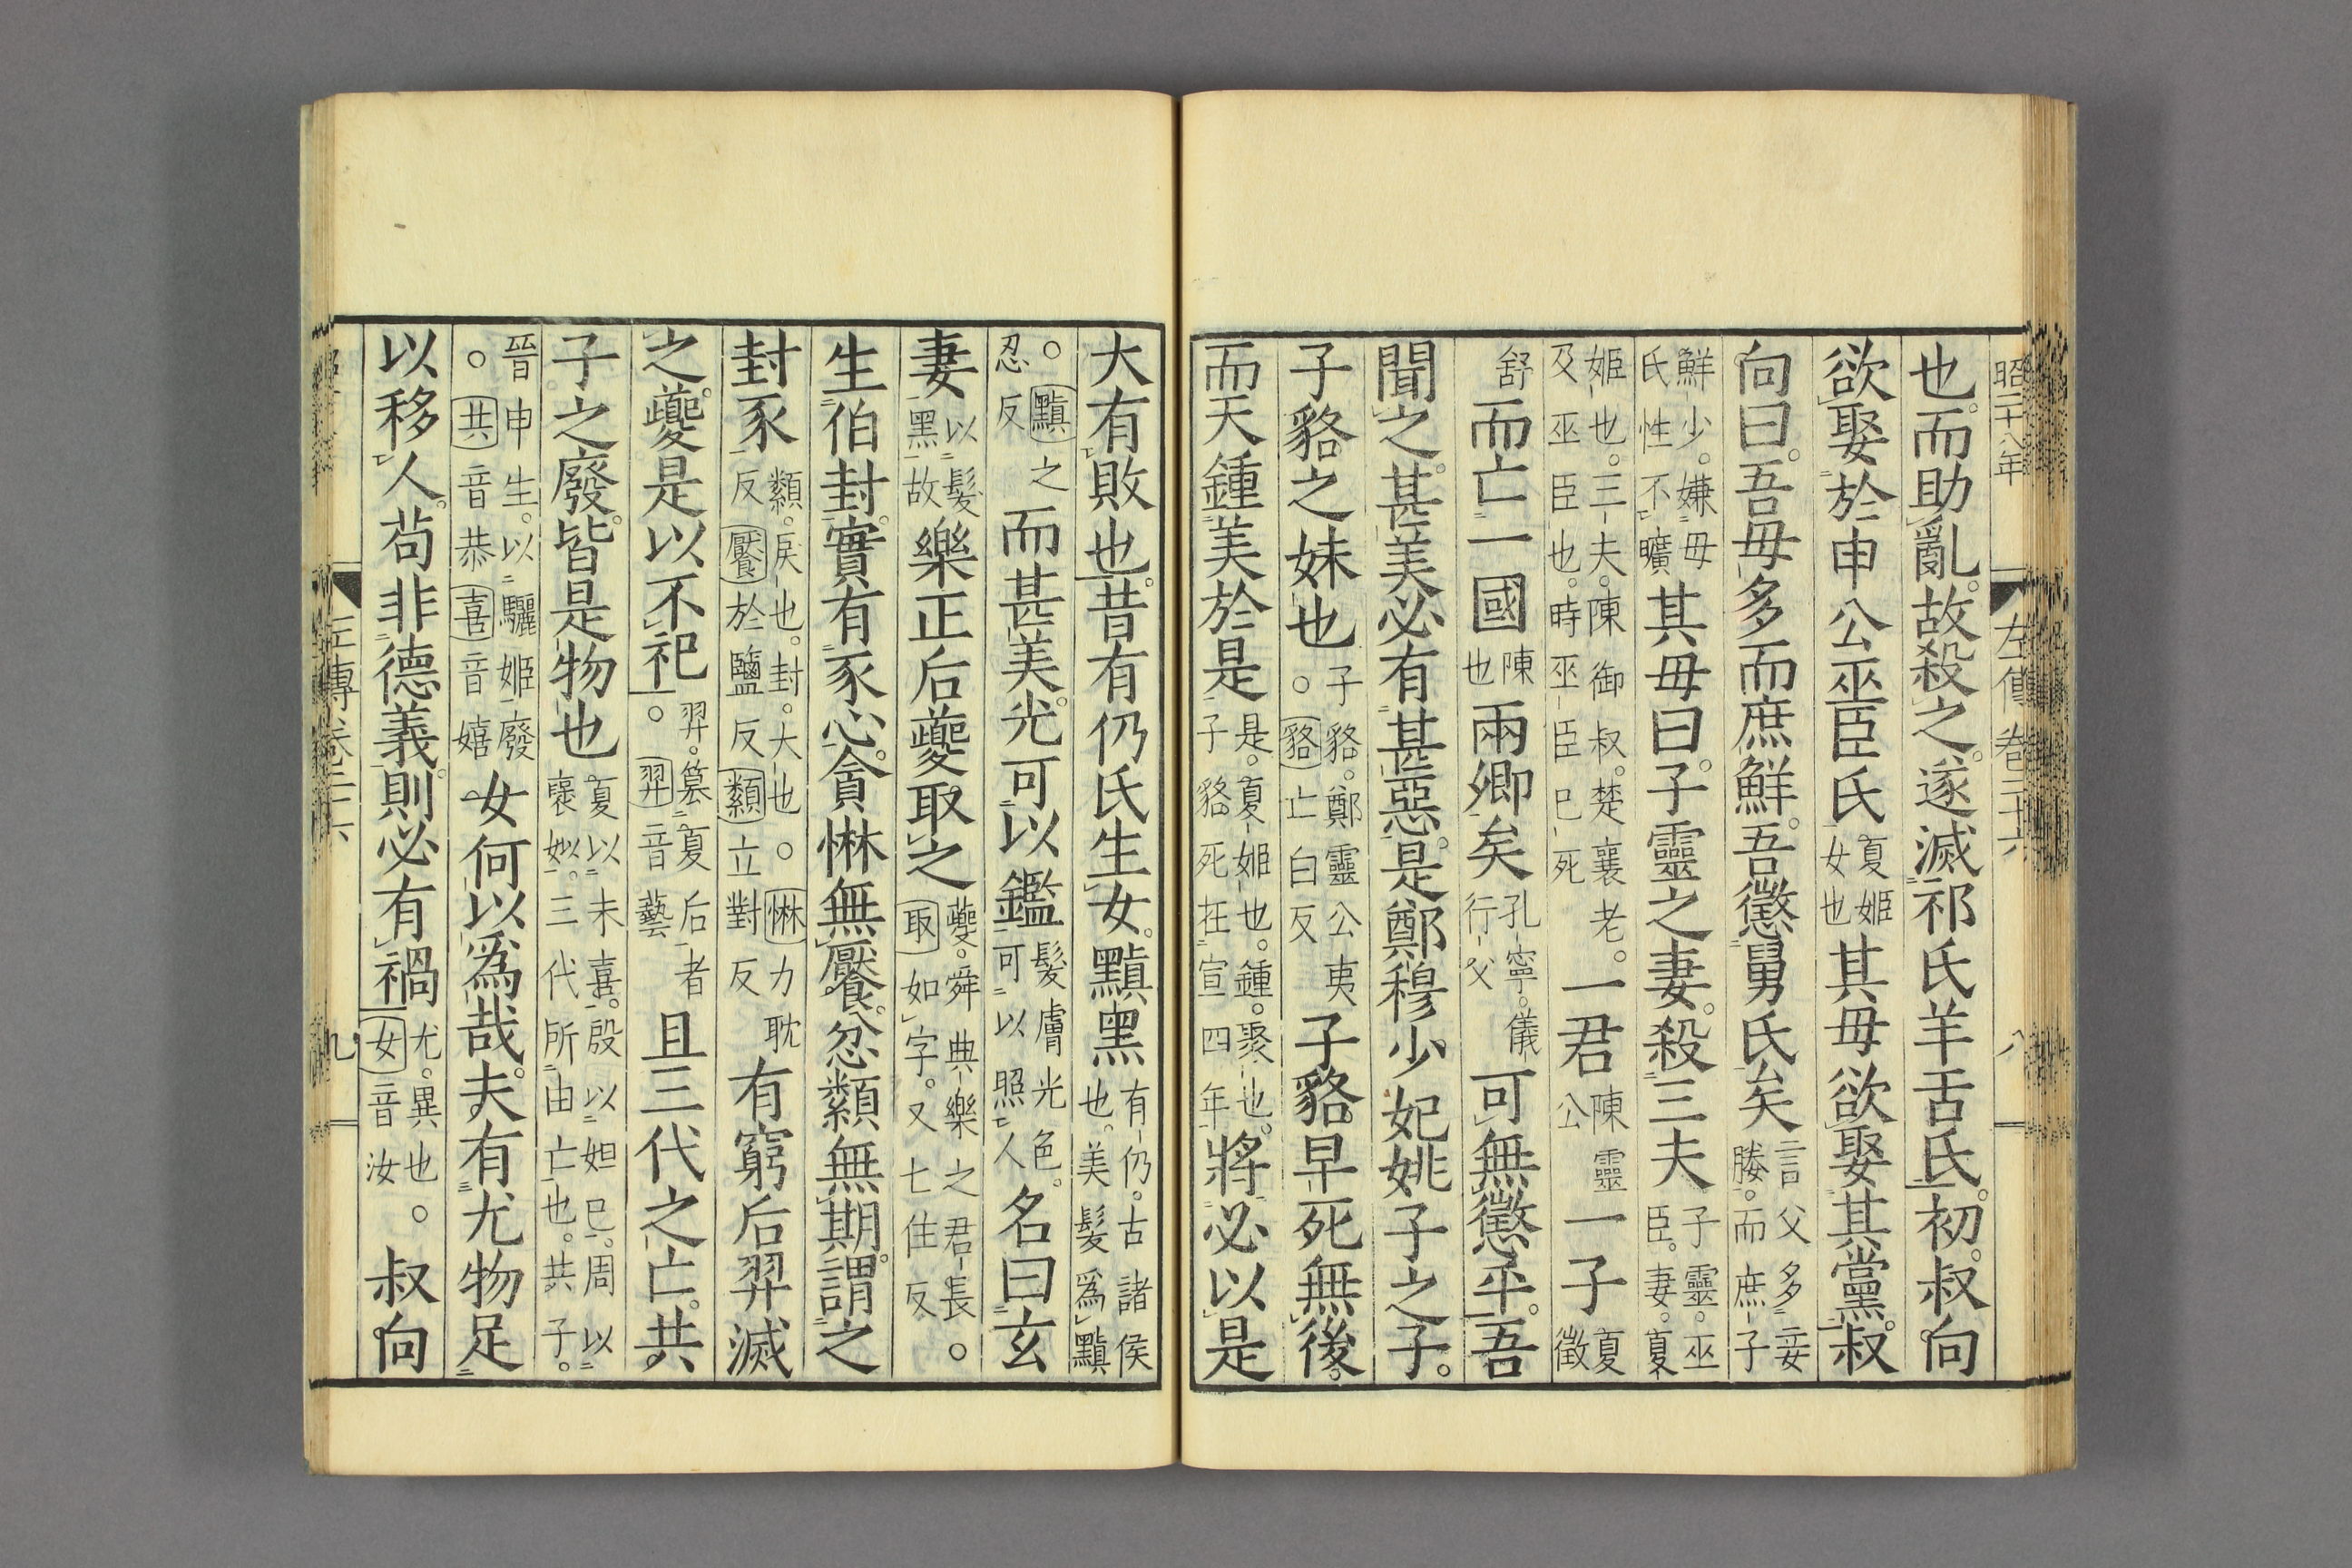 昭二十八年　左傳卷二十六　八
也。而助亂。故殺之。遂滅祁氏羊舌氏。初。叔向
欲娶於申公巫臣氏夏姬女也其母欲娶其黨。叔
向曰。吾母多而庶鮮。吾懲舅氏矣言父多妾媵。而庶子
鮮少。嫌母氏性不曠其母曰。子靈之妻。殺三夫子靈。巫臣。妻。夏
姬也。三夫。陳御叔。楚襄老。及巫臣也。時巫臣已死一君陳靈公一子夏徵
舒而亡一國陳也兩卿矣孔寧。儀行父可無懲乎。吾
聞之。甚美必有甚惡。是鄭穆少妃姚子之子。
子貉之妹也子貉。鄭靈公夷。○貉亡白反子貉早死無後。
而天鍾美於是是。夏姬也。鍾。聚也。子貉死在宣四年將必以是
大有敗也。昔有仍氏生女。黰黑有仍。古諸侯也。美髮爲黰
○黰之忍反而甚美。光可以鑑髮膚光色。可以照人名曰玄
妻以髮黑故樂正后夔取之夔。舜典樂之君長。○取如字。又七住反
生伯封。實有豕心。貪惏無饜。忿纇無期。謂之
封豕纇。戾也。封。大也。○惏力耽反饜於鹽反纇立對反有窮后羿滅
之。夔是以不祀羿。簒夏后者。○羿音藝且三代之亡。共
子之廢。皆是物也夏以末喜。殷以妲己。周以襃姒。三代所由亡也。共子。
晉申生。以驪姬廢。○共音恭喜音嬉女何以爲哉。夫有尤物足
以移人。苟非德義。則必有禍尤。異也。○女音汝叔向
左傳卷二十六　九